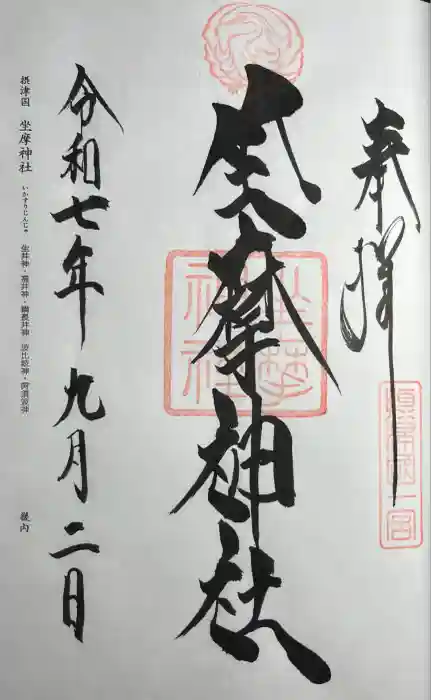 奉拝
摂津国一宮
坐摩神社
坐摩神社
令和七年 九月 二日
摂津国 坐摩神社 いかすりじんじゃ 生井神・福井神・綱長井神 波比祇神・阿須波神